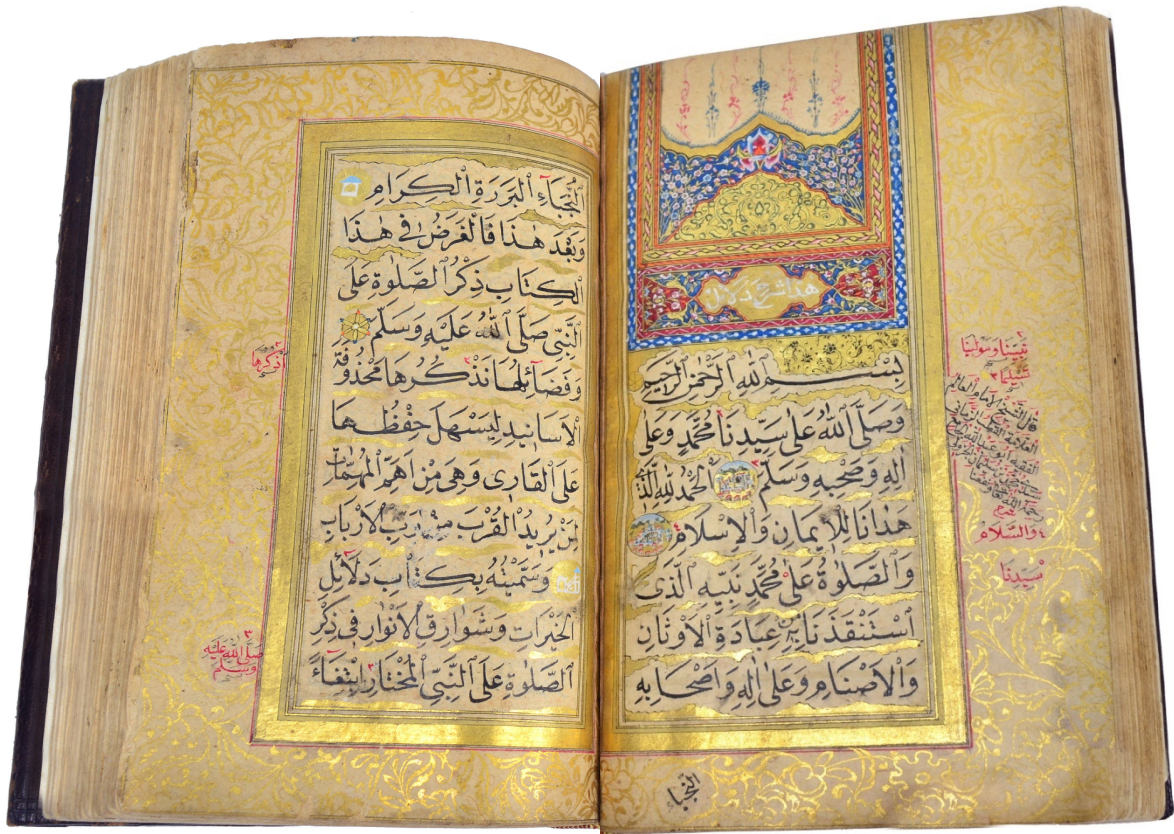 هذا شرح دلائل
بِسْمِ اللهِ الرَّحْمٰنِ الرَّحِيمِ
وَصَلَّى اللهُ عَلٰى سَيِّدِنَا مُحَمَّدٍ وَعَلٰى
اٰلِهِ وَصَحْبِهِ وَسَلَّمَ اَلْحَمْدُ لِلّٰهِ الَّذِى
هَدَانَا لِلْاِيمَانِ وَالْاِسْلَامِ
وَالصَّلٰوةُ عَلٰى مُحَمَّدٍ نَبِيِّهِ الَّذِى
اسْتَنْقَذَنَا بِهِ مِنْ عِبَادَةِ الْاَوْثَانِ
وَالْاَصْنَامِ وَعَلٰى اٰلِهِ وَاَصْحَابِهِ
النجباء
نبينا ومولينا
تسليما
قال الشيخ الامام العالم
والسلام
سيدنا
النُّجَبَاءِ الْبَرَرَةِ الْكِرَامِ
وَبَعْدَ هٰذَا فَالْغَرَضُ فِى هٰذَا
الْكِتَابِ ذِكْرُ الصَّلٰوةِ عَلَى
النَّبِىِّ صَلَّى اللهُ عَلَيْهِ وَسَلَّمَ
وَفَضَائِلُهَا نَذْكُرُهَا مَحْذُوفَةَ
الْاَسَانِيدِ لِيَسْهَلَ حِفْظُهَا
عَلَى الْقَارِى وَهِىَ مِنْ اَهَمِّ الْمُهِمَّاتِ
لِمَنْ يُرِيدُ الْقُرْبَ مِنْ رَبِّ الْاَرْبَابِ
وَسَمَّيْتُهُ بِكِتَابِ دَلَائِلِ
الْخَيْرَاتِ وَشَوَارِقِ الْاَنْوَارِ فِى ذِكْرِ
الصَّلٰوةِ عَلَى النَّبِىِّ الْمُخْتَارِ ابْتِغَاءً
اذكرها
صلى الله عليه
وسلم